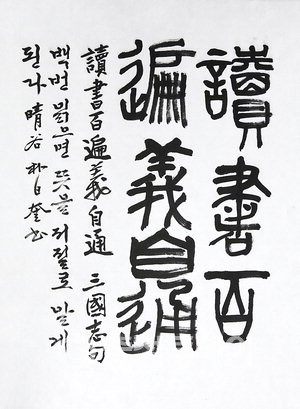 讀書百
遍義自通
讀書百遍義自通 三國志句
백번 읽으면 뜻을 저절로 알게
된다 晴谷 朴日奎书